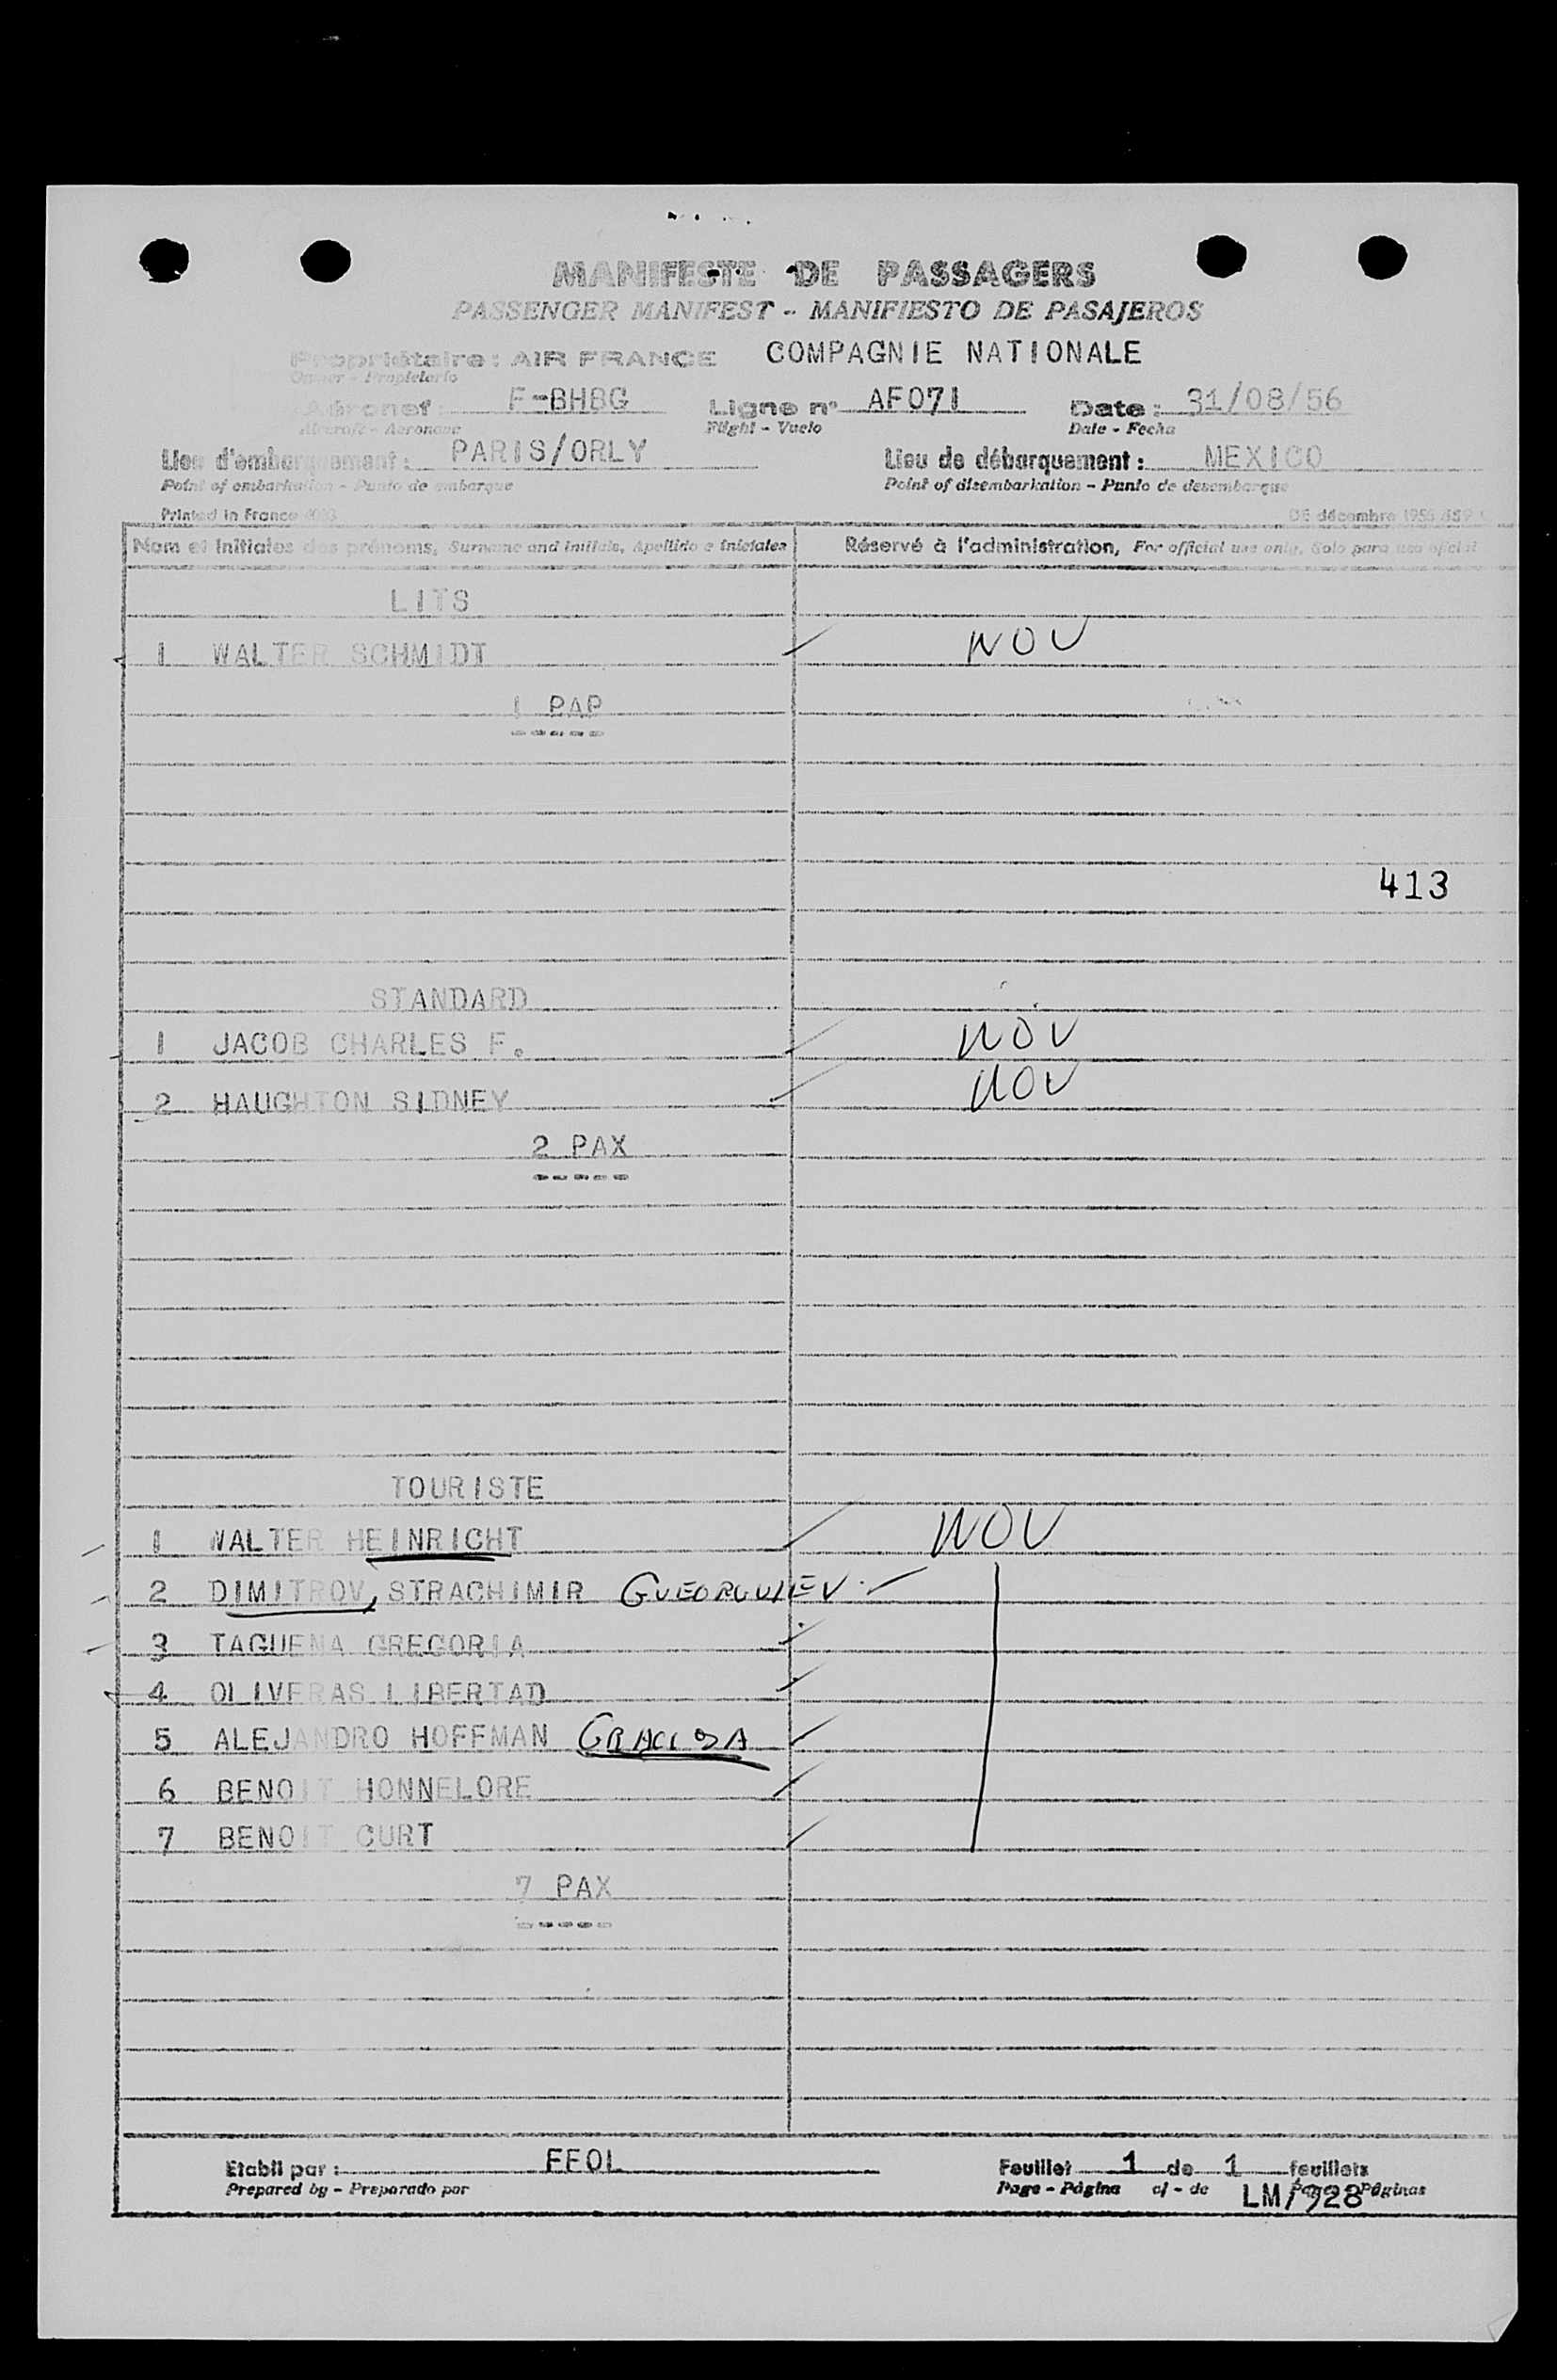 MANIFESTE DE PASSAGERS
PASSENGER MANIFEST - MANIFIESTO DE PASAJEROS
Propriétaire : AIR FRANCE COMPAGNIE NATIONALE
Owner - Propietario
Aéronef : F-BHBG Ligne n° AF071 Date : 31/08/56
Aircraft - Aeronave Flight - Vuelo Date - Fecha
Lieu d'embarquement : PARIS/ORLY Lieu de débarquement : MEXICO
Point of embarkation - Punto de embarque Point of disembarkation - Punto de desembarque
Printed in France DE décembre 1955
Nom et initiales des prénoms, Surname and initials, Apellido e iniciales Réservé à l'administration, For official use only, Solo para uso oficial
LITS
1 WALTER SCHMIDT NOV
1 PAP
413
STANDARD
1 JACOB CHARLES F. NOV
2 HAUGHTON SIDNEY NOV
2 PAX
TOURISTE
1 WALTER HEINRICHT NOV
2 DIMITROV, STRACHIMIR GUEORGUIEV
3 TAGUENA GREGORIA
4 OLIVERAS LIBERTAD
5 ALEJANDRO HOFFMAN GRACIOSA
6 BENOIT HONNELORE
7 BENOIT CURT
7 PAX
Etabli par : EEOL Feuillet 1 de 1 feuillets
Prepared by - Preparado por Page - Página of - de Pages Páginas
LM/928